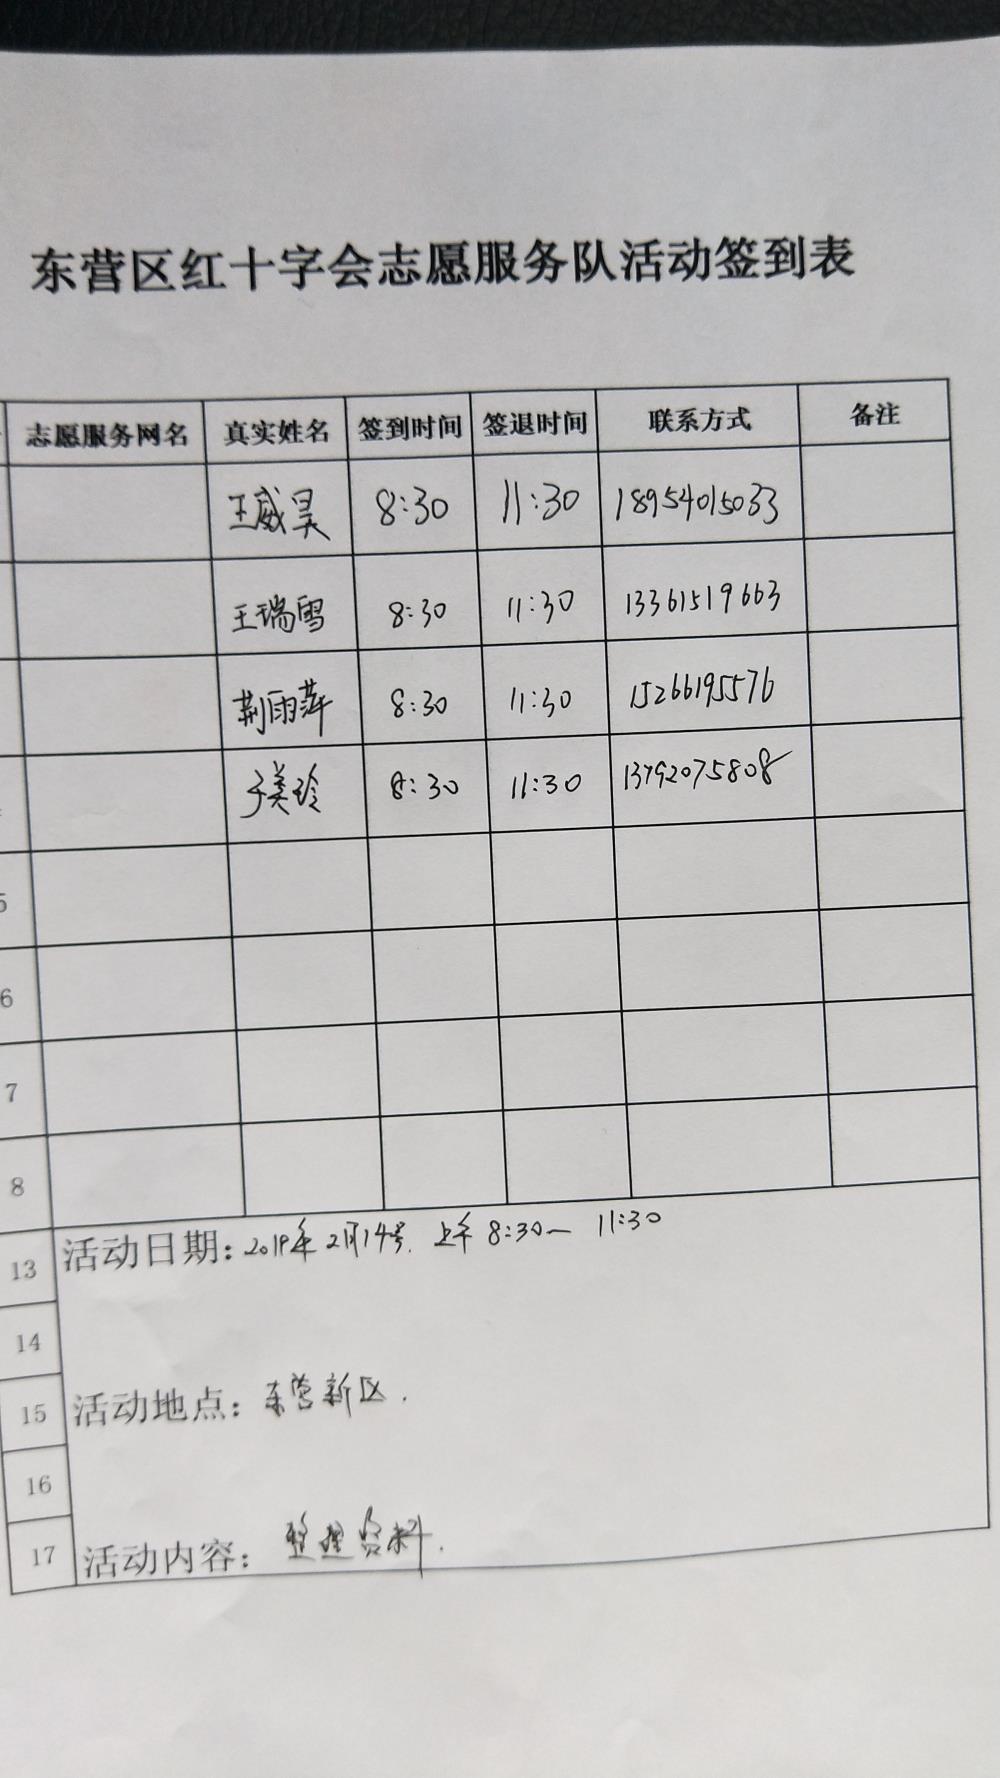 东营区红十字会志愿服务队活动签到表
志愿服务网名 真实姓名 签到时间 签退时间 联系方式 备注
王威昊 8:30 11:30 18954015033
王瑞雪 8:30 11:30 13361519663
荆雨萍 8:30 11:30 15266195576
于美玲 8:30 11:30 13792075808
5
6
7
8
13 活动日期：2019年2月14号.上午8:30— 11:30
14
15 活动地点：东营新区.
16
17 活动内容：整理资料.